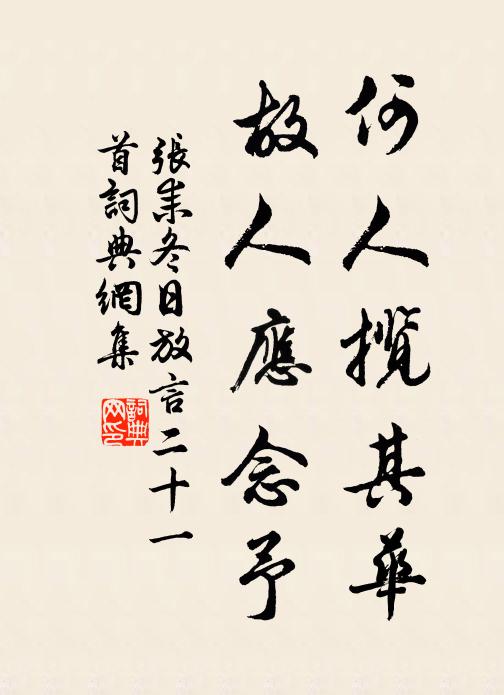 何人揽其華
故人應念予
張耒冬日放言二十一
首詞典網集
詞典网印